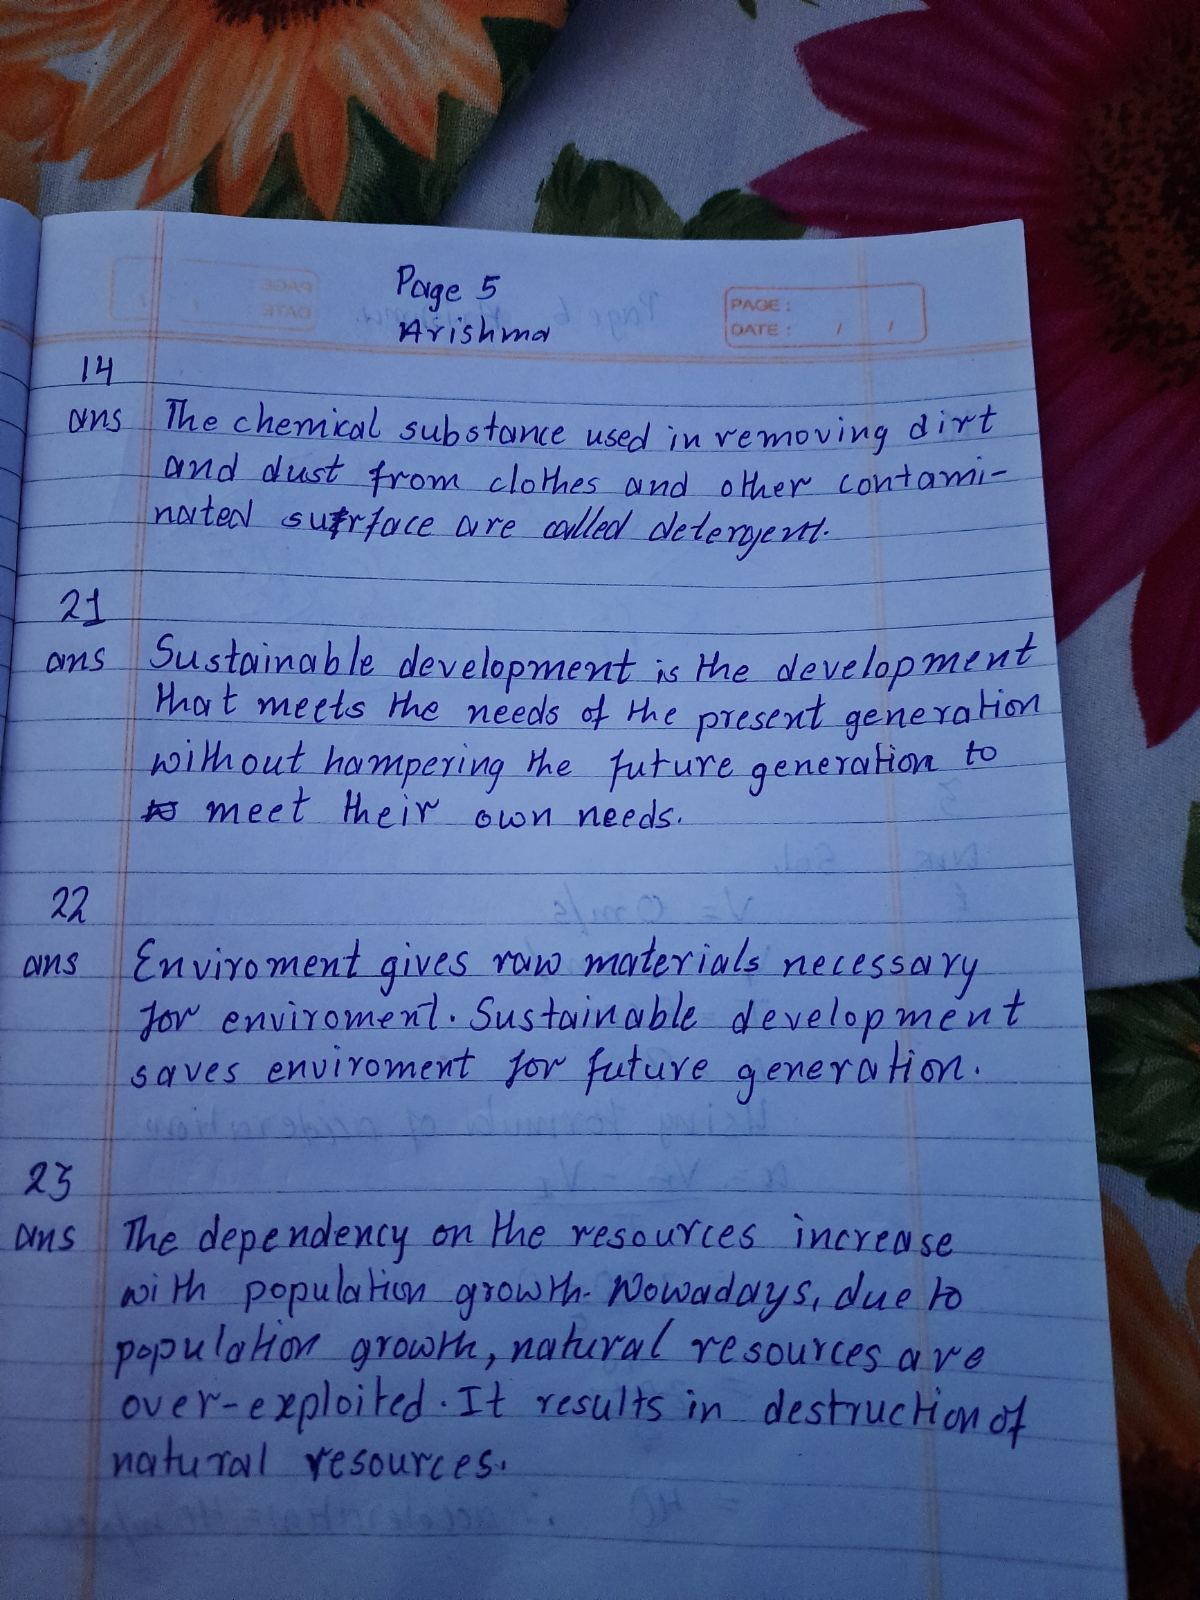 Page 5
Arishma
PAGE:
DATE: / /
14
ans The chemical substance used in removing dirt
and dust from clothes and other contami-
nated surface are called detergent.
21
ans Sustainable development is the development
that meets the needs of the present generation
without hampering the future generation to
meet their own needs.
22
ans Enviroment gives raw materials necessary
for enviroment. Sustainable development
saves enviroment for future generation.
23
ans The dependency on the resources increase
with population growth. Nowadays, due to
population growth, natural resources are
over-exploited. It results in destruction of
natural resources.